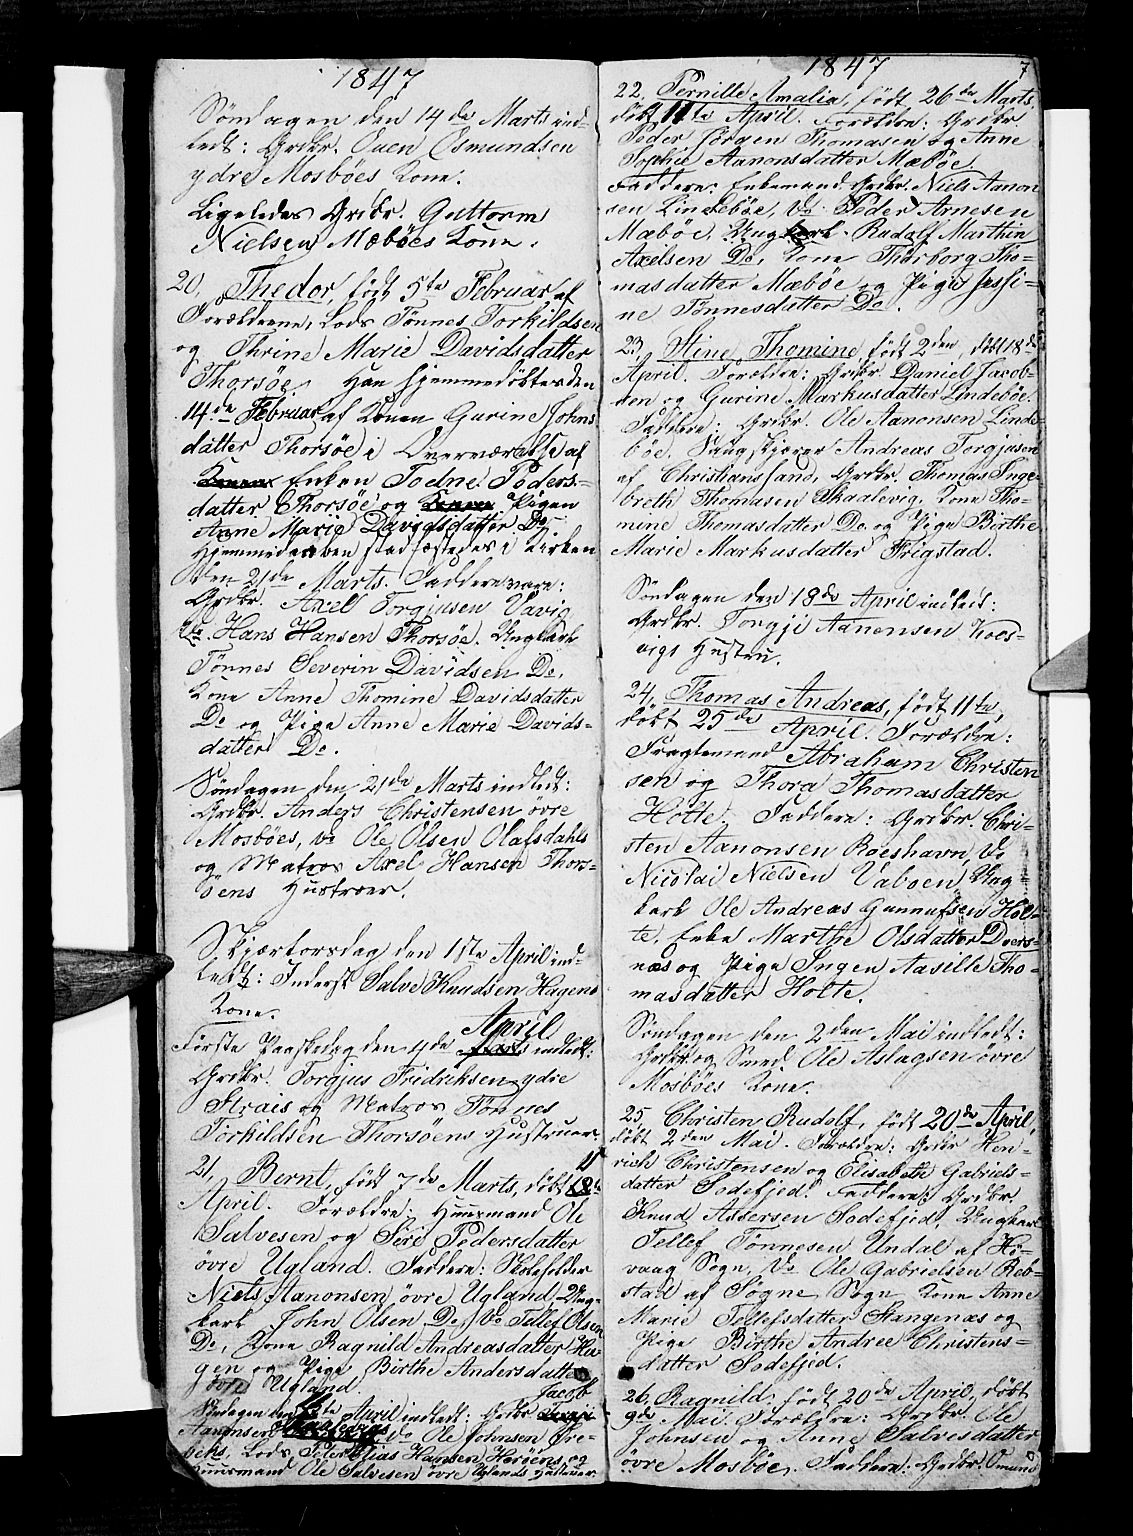 1847
Söndagen den 14de Marts ind-
ledt: Grdbr. Ouen Osmundsen
ydre Mosböes Kone.
Ligeledes Grdbr. Guttorm
Nielsen Mæböes Kone.
20, Thedor, född 5te Februar, af
Forældrene, Lods Tönnes Torkildsen
og Thrine Marie Davidsdatter
Thorsöe. Han hjemmedöbtes den
14de Februar af Konen Gurine Johns
datter Thorsöe i Overværelse af
Enken Todne Peders-
datter Thorsöe og Pigen
Anne Marie Davidsdatter Do
Hjemmedaaben stadfæstedes i Kirken
den 21de Marts. Faddere vare:
Grdbr. Axel Torgjusen Vavig
Do Hans Hansen Thorsöe. Ungkarl
Tönnes Severin Davidsen Do,
Kone Anne Thomine Davidsdatter
Do og Pige Anne Marie Davids-
datter Do.
Söndagen den 21de Marts indledt:
Grdbr. Anders Christensen övre
Mosböes, Do Ole Olsen Olafsdahls
og Matros Axel Hansen Thors-
öens Hustruer.
Skjærtorsdag den 1ste April ind-
ledt: Inderst Salve Knudsen Hagens
Kone.
April
Förste Paaskedag den 4de Marts indledt:
Grdbr. Torgjus Fridriksen ydre
Strais og Matros Tönnes
Torkildsen Thorsöens Hustruer.
21, Bernt, född 7de Marts, döbt 11
April. Forældre: Huusmand Ole
Salvesen og Siri Pedersdatter
övre Ugland. Faddere: Skoleholder
Niels Aanonsen övre Ugland, Ung-
karl John Olsen Do, Do Tellef Olsen
Do, Kone Ragnild Andreasdatter Ha-
gen og Pige Birthe Andersdatter
övre Ugland.
Jacob
Söndagen den te April indledt: Grdbr
Aanonsen Do Ole Johnsen Öre-
Lods Peter Elias Hansen Heröens og
Huusmand Ole Salvesen övre Uglands Hustruer.
1847
7
22, Pernille Amalia, född 26de Marts,
döbt 11te April. Forældre: Grdbr
Peder Jörgen Thomasen og Anne
Sophie Aanonsdatter Mæböe
Faddere: Enkemand Grdbr. Niels Aanon
sen Lindeböe, Do Peder Arnesen
Mæböe, Ungkarl Rudolf Marthin
Axelsen Do, Kone Thorborg Tho-
masdatter Mæböe og Pige Jessi-
ne Tönnesdatter Do.
23, Stine Thomine, född 2den, döbt 18de
April. Forældre: Grdbr. Daniel Jacob-
sen og Gurine Markusdatter Lindeböe.
Faddere: Grdbr. Ole Aanonsen Linde-
böe. Saugskjærer Andreas Torgjusen
af Christianssand, Grdbr. Thomas Inge-
breth Thomasen Skaalevig, Kone Tho-
mine Thomasdatter Do og Pige Birthe
Marie Markusdatter Frigstad.
Söndagen den 18de April indledt:
Grdbr. Torgji Aanonsen Koes-
vigs Hustru.
24, Thomas Andreas, född 11te,
döbt 25de April. Forældre:
Fragtemand Abraham Christen
sen og Thora Thomasdatter
Holte. Faddere: Grdbr. Chri-
sten Aanonsen Roeshavn, Do
Nicolai Nielsen Vaboen, Ung-
karl Ole Andreas Gunnufsen Hol-
te, Enke Marthe Olsdatter Dvers-
næs og Pige Ingen Aasille Tho-
masdatter Holte.
Söndagen den 2den Mai indledt:
Grdbr og Smed Ole Aslagsen övre
Mosböes Kone.
25, Christen Rudolf, född 20de April,
döbt 2den Mai. Forældre: Grdbr Hen-
rich Christensen og Elisabeth Gabriels-
datter Sodefjed. Faddere: Grdbr
Knud Assersen Sodefjed, Ungkarl
Tellef Tönnesen Undal af Hö-
vaag Sogn, Do Ole Gabrielsen Reb-
stad af Sögne Sogn, Kone Anne
Marie Tellefsdatter Stangenæs og
Pige Birthe Andree Christens-
datter Sodefjed.
26, Ragnild, född 20de April, döbt
9de Mai. Forældre: Grdbr. Ole
Johnsen og Anne Salvesdatter
övre Mosböe. Faddere: Grdbr. Omund